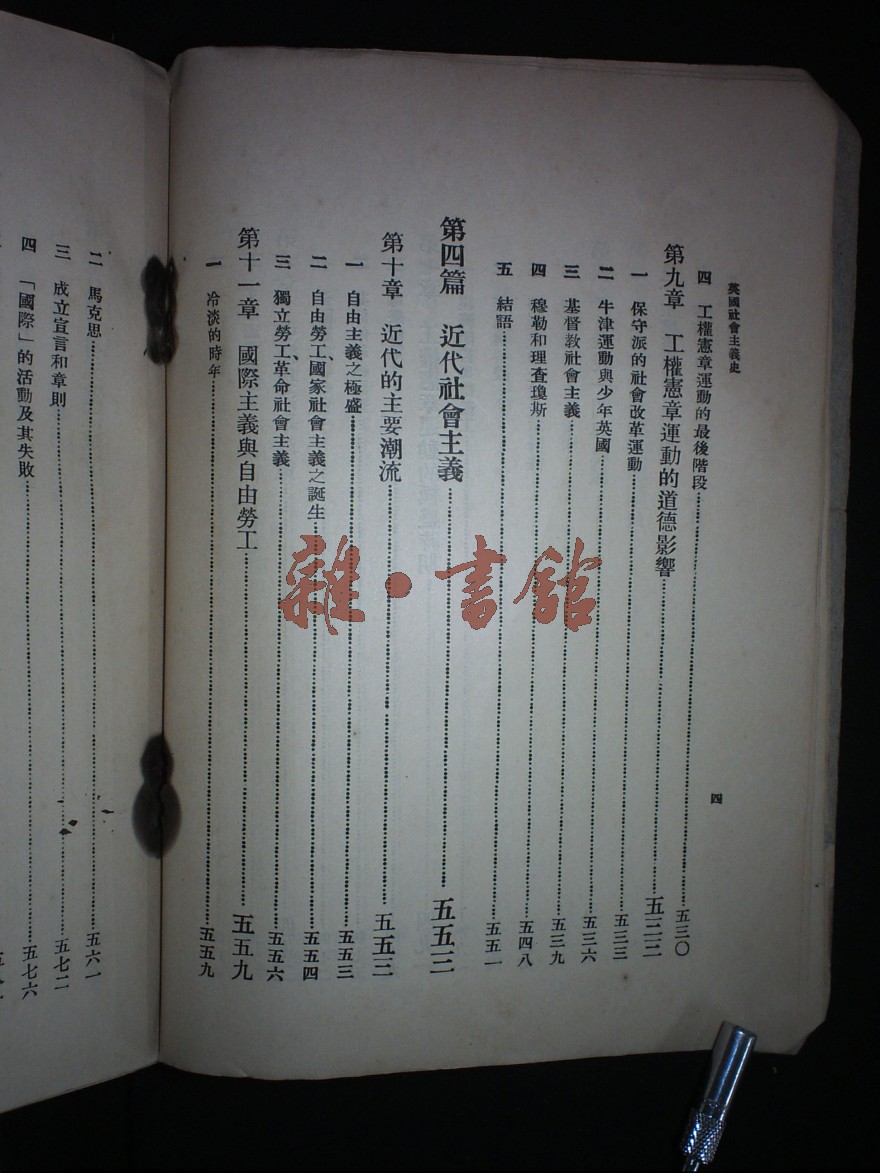 英國社會主義史
四
四 工權憲章運動的最後階段……五三〇
第九章 工權憲章運動的道德影響……五三三
一 保守派的社會改革運動……五三三
二 牛津運動與少年英國……五三六
三 基督教社會主義……五三九
四 穆勒和理查瓊斯……五四八
五 結語……五五一
第四篇 近代社會主義……五五三
第十章 近代的主要潮流……五五三
一 自由主義之極盛……五五三
二 自由勞工、國家社會主義之誕生……五五四
三 獨立勞工、革命社會主義……五五六
第十一章 國際主義與自由勞工……五五九
一 冷淡的時年……五五九
二 馬克思……五六一
三 成立宣言和章則……五七二
四 「國際」的活動及其失敗……五七六
雜·書館